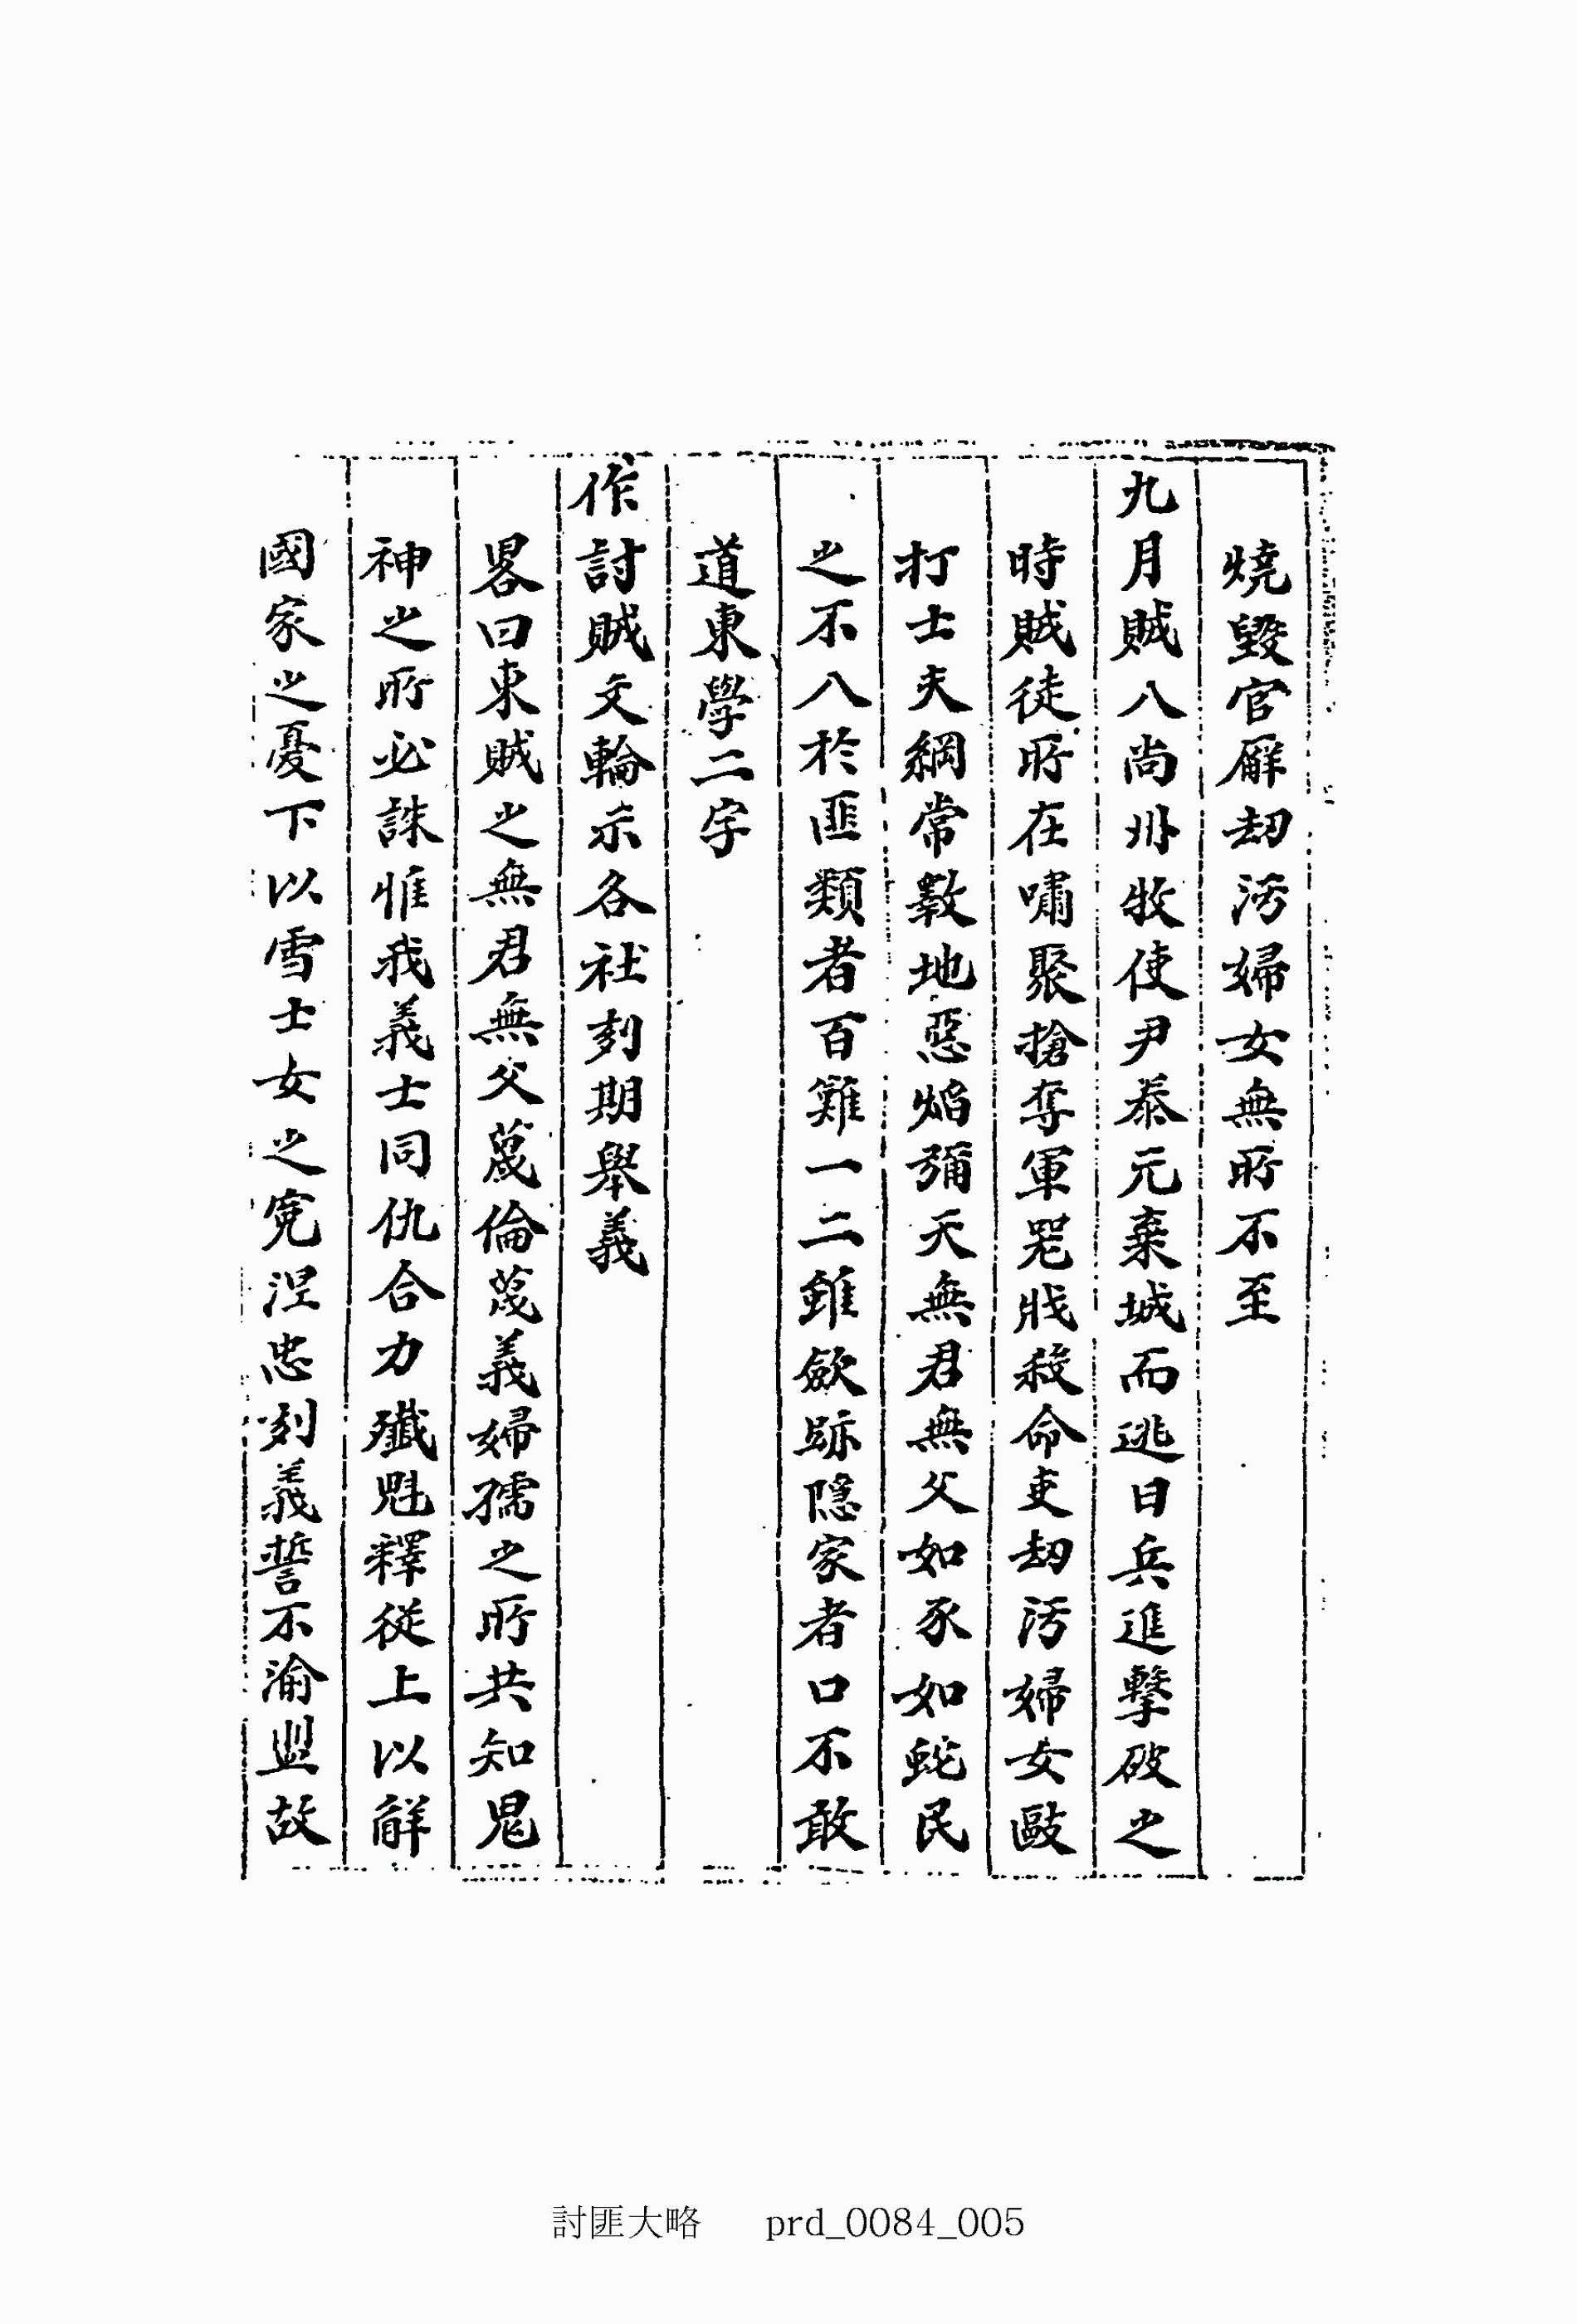 燒毀官廨刼汚婦女無所不至
九月賊入尙州牧使尹泰元棄城而逃日兵進擊破之
時賊徒所在嘯聚搶奪軍器戕殺命吏刼汚婦女毆
打士夫綱常斁地惡焰彌天無君無父如豕如蛇民
之不入於匪類者百難一二雖歛跡隱家者口不敢
道東學二字
作討賊文輪示各社刻期舉義
畧曰東賊之無君無父蔑倫蔑義婦孺之所共知鬼
神之所必誅惟我義士同仇合力殲魁釋從上以解
國家之憂下以雪士女之寃涅忠刻義誓不渝盟故
討匪大略 prd_0084_005